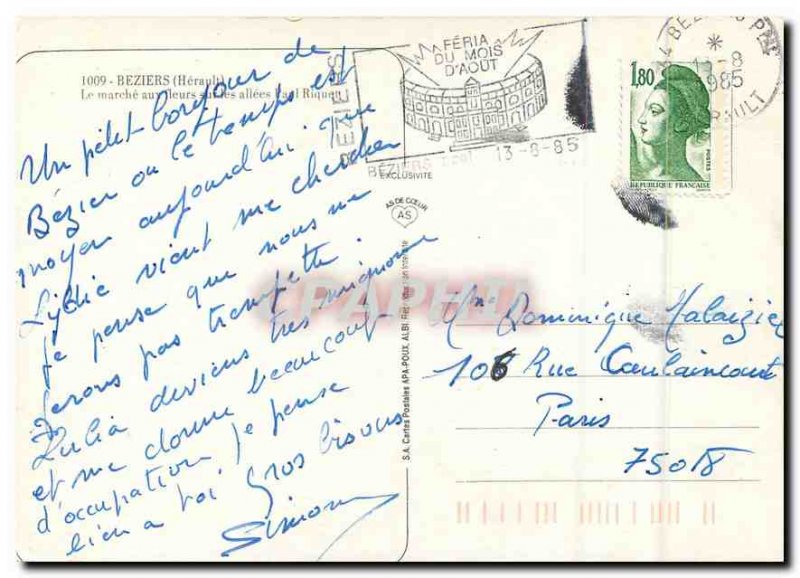 1009 - BEZIERS (Hérault)
Le marché aux fleurs sur les allées Paul Riquet
Un petit bonjour de
Bézier ou le temps est
moyen aujourd'hui. que
Lydie vient me chercher
je pense que nous ne
ferons pas trempette.
Julia deviens très mignonne
et me donne beaucoup
d'occupation je pense
bien a toi Gros bisous
Simone
BEZIERS
FÉRIA
DU MOIS
D'AOÛT
BÉZIERS 13-8-85
EXCLUSIVITÉ
AS DE CŒUR
AS
S.A. Cartes Postales APA-POUX, ALBI. Reproduction interdite
34 BEZIERS PPL
13-8
1985
HERAULT
1,80
POSTES
REPUBLIQUE FRANÇAISE
Mme Dominique Malaizieg
106 Rue Caulaincourt
Paris
75018
CPAPHIL